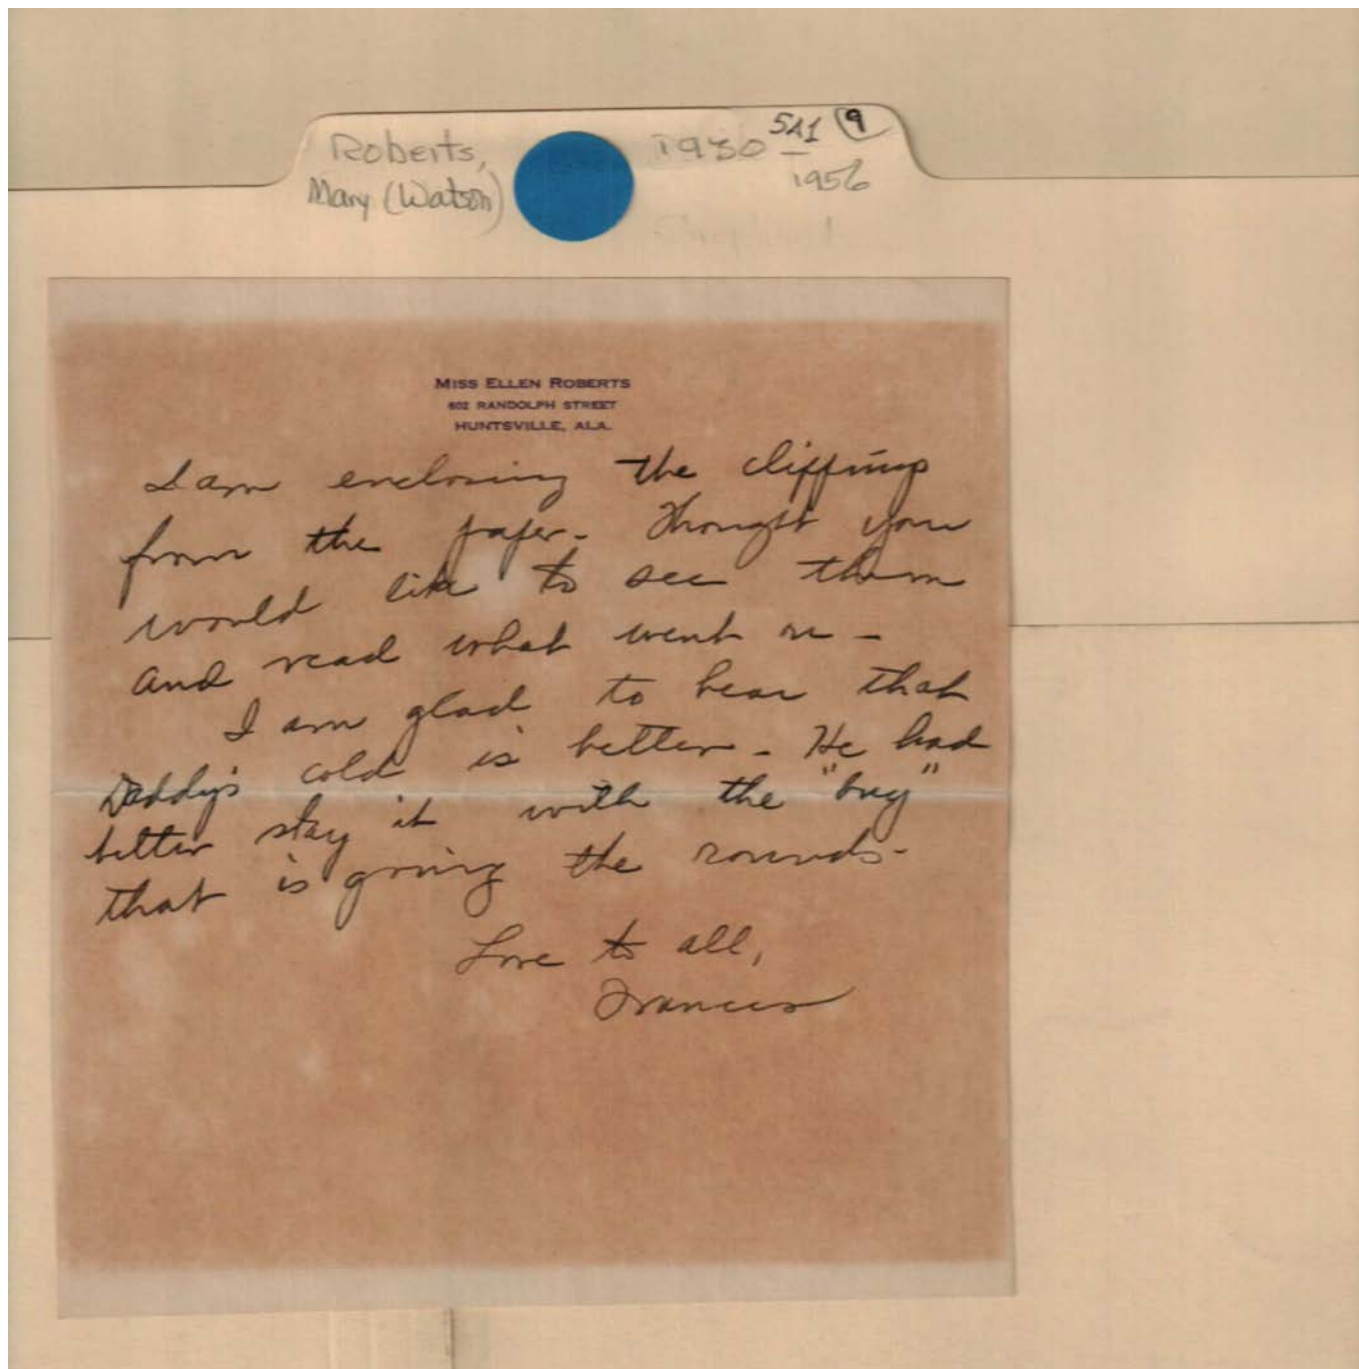 Roberts,
Mary (Watson)
1930 -
1956
5A1 9
MISS ELLEN ROBERTS
602 RANDOLPH STREET
HUNTSVILLE, ALA.
I am enclosing the clippings
from the paper - Thought you
would like to see them
and read what went on -
I am glad to hear that
Daddy's cold is better - He had
better stay it with the "bug"
that is going the rounds -
Love to all,
Frances